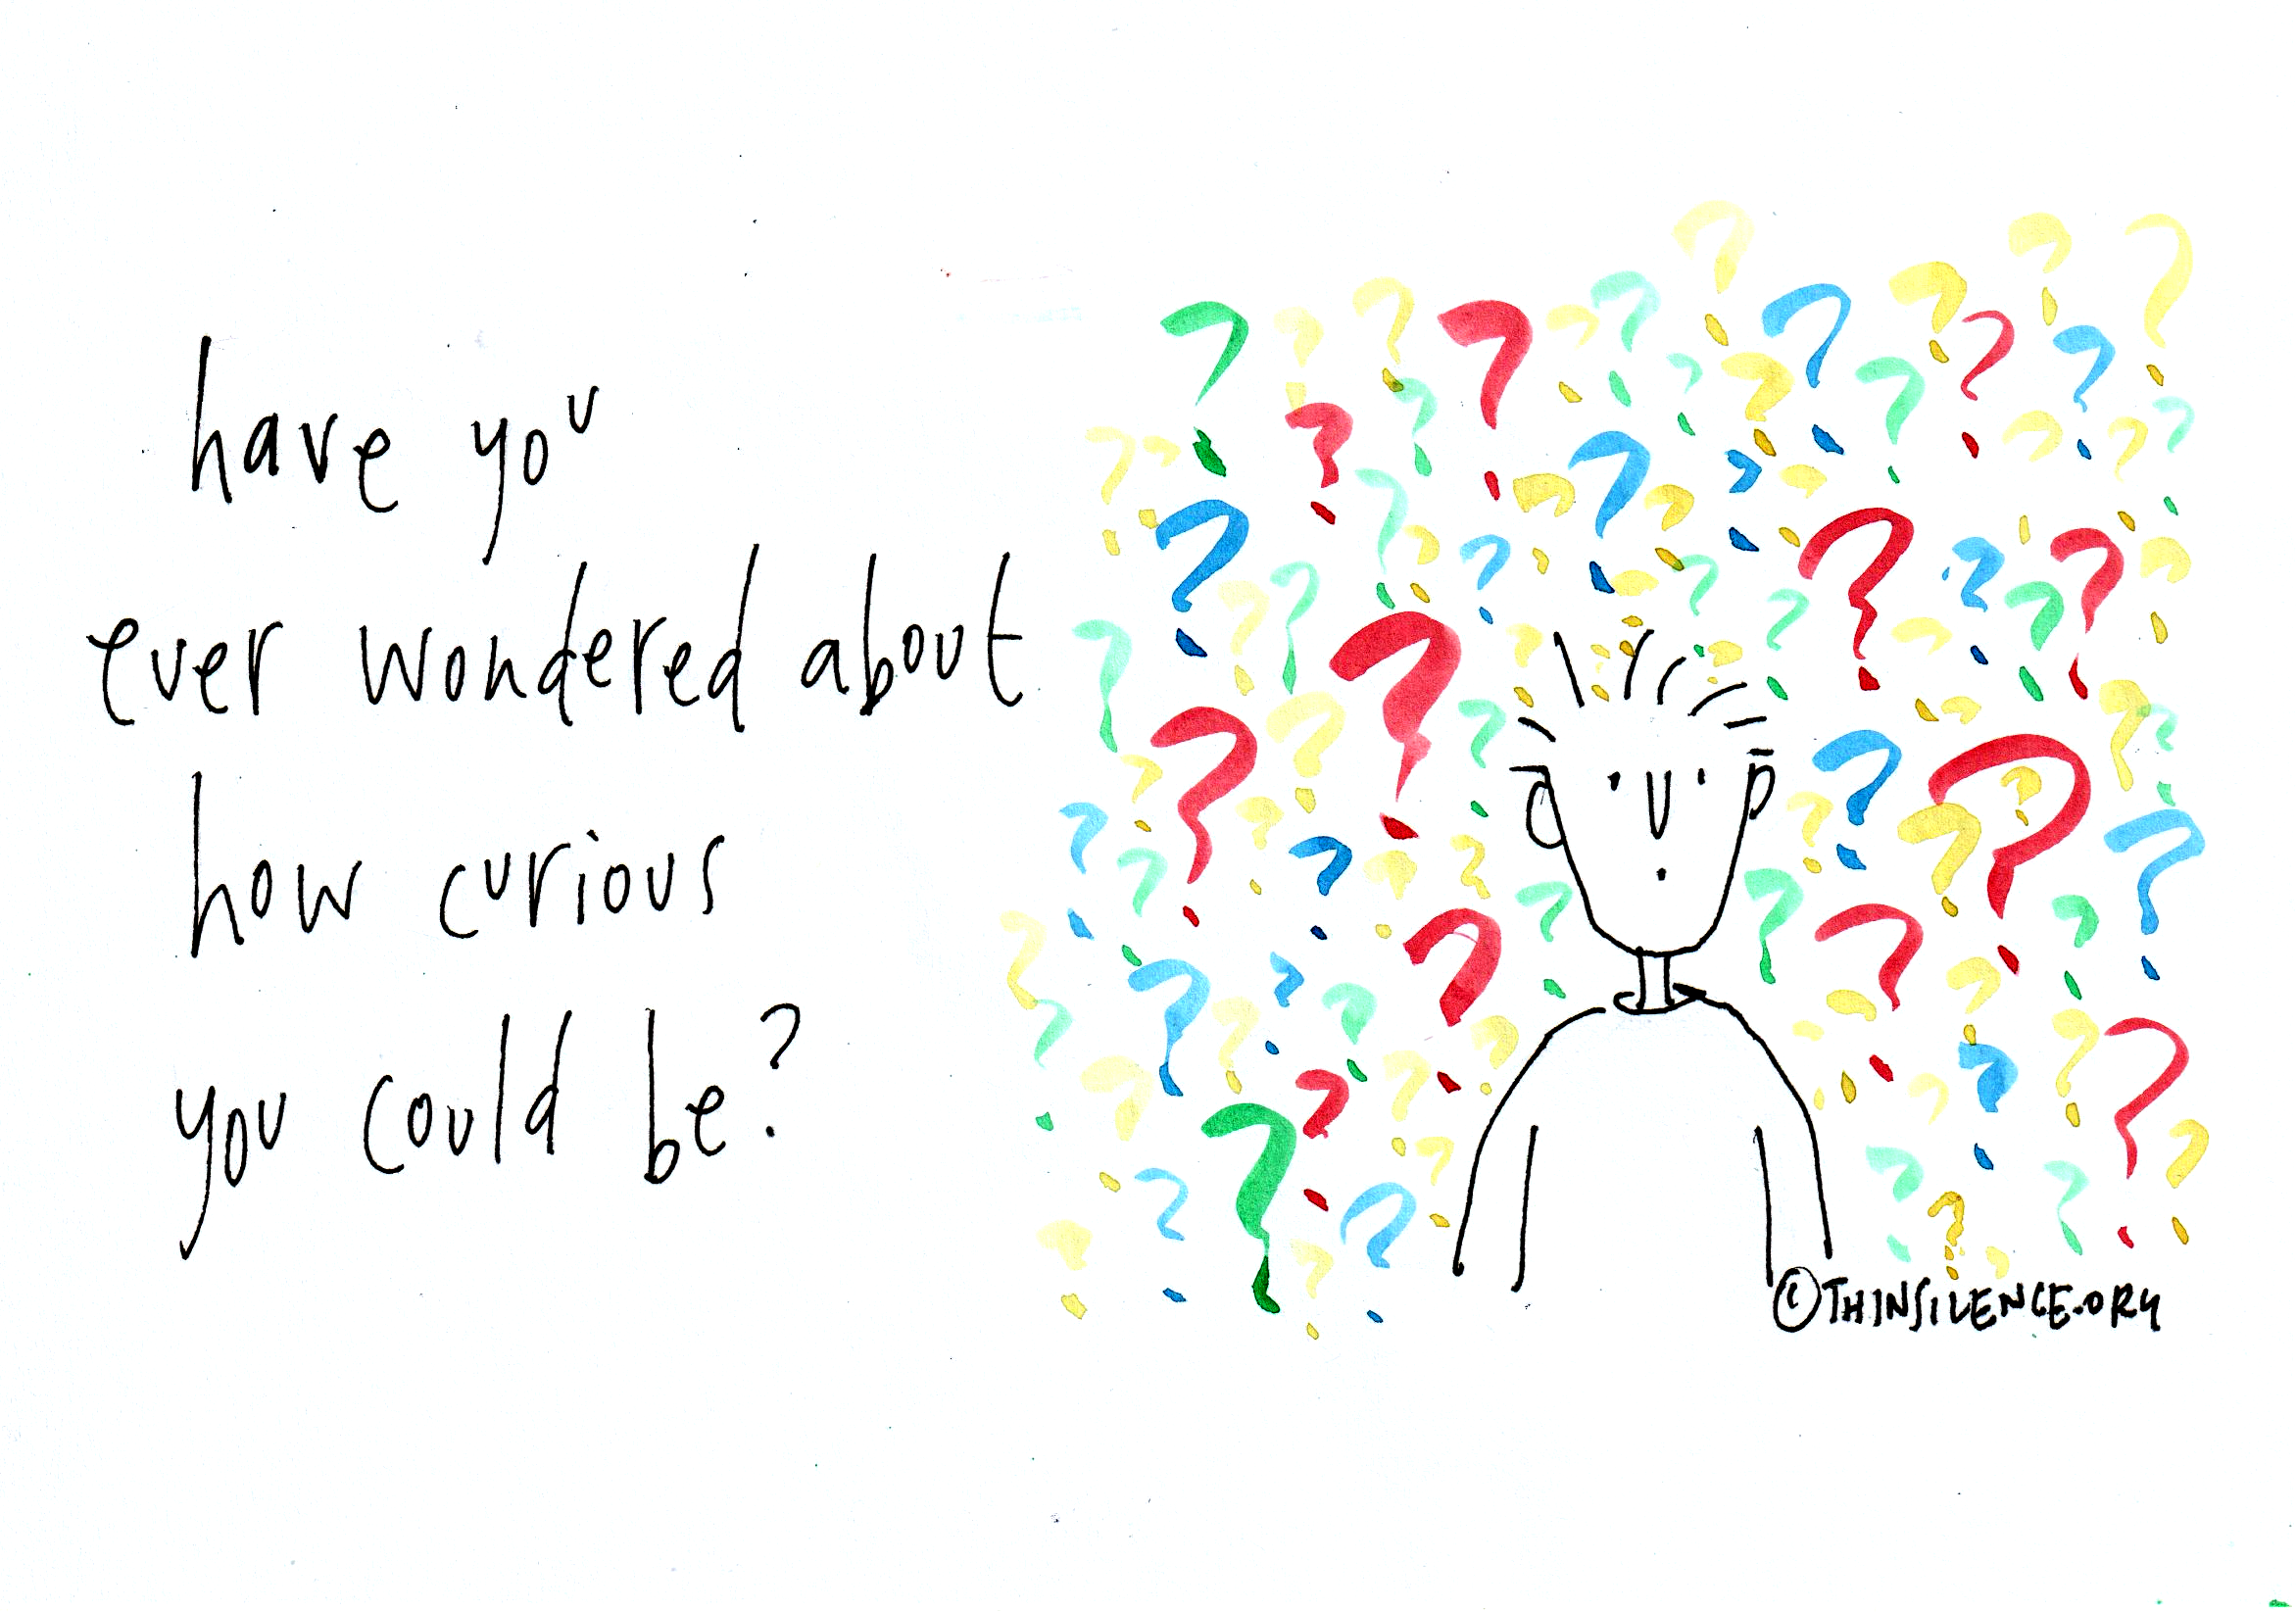 have you
ever wondered about
how curious
you could be?
©THINSILENCE.ORG